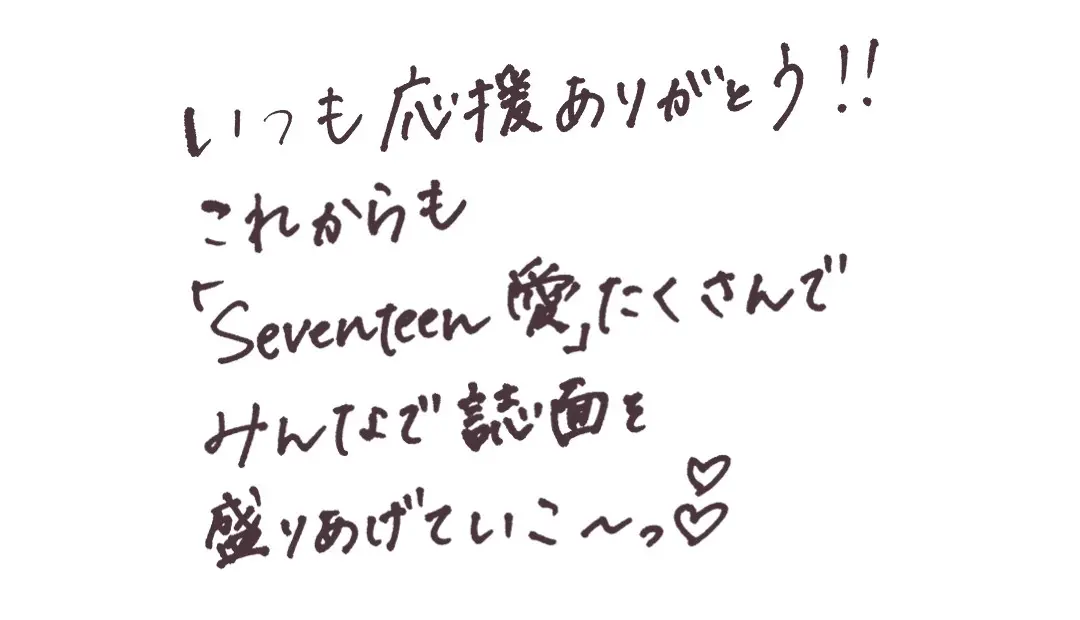 いつも応援ありがとう!!
これからも
「Seventeen愛」たくさんで
みんなで誌面を
盛りあげていこ〜っ♡♡